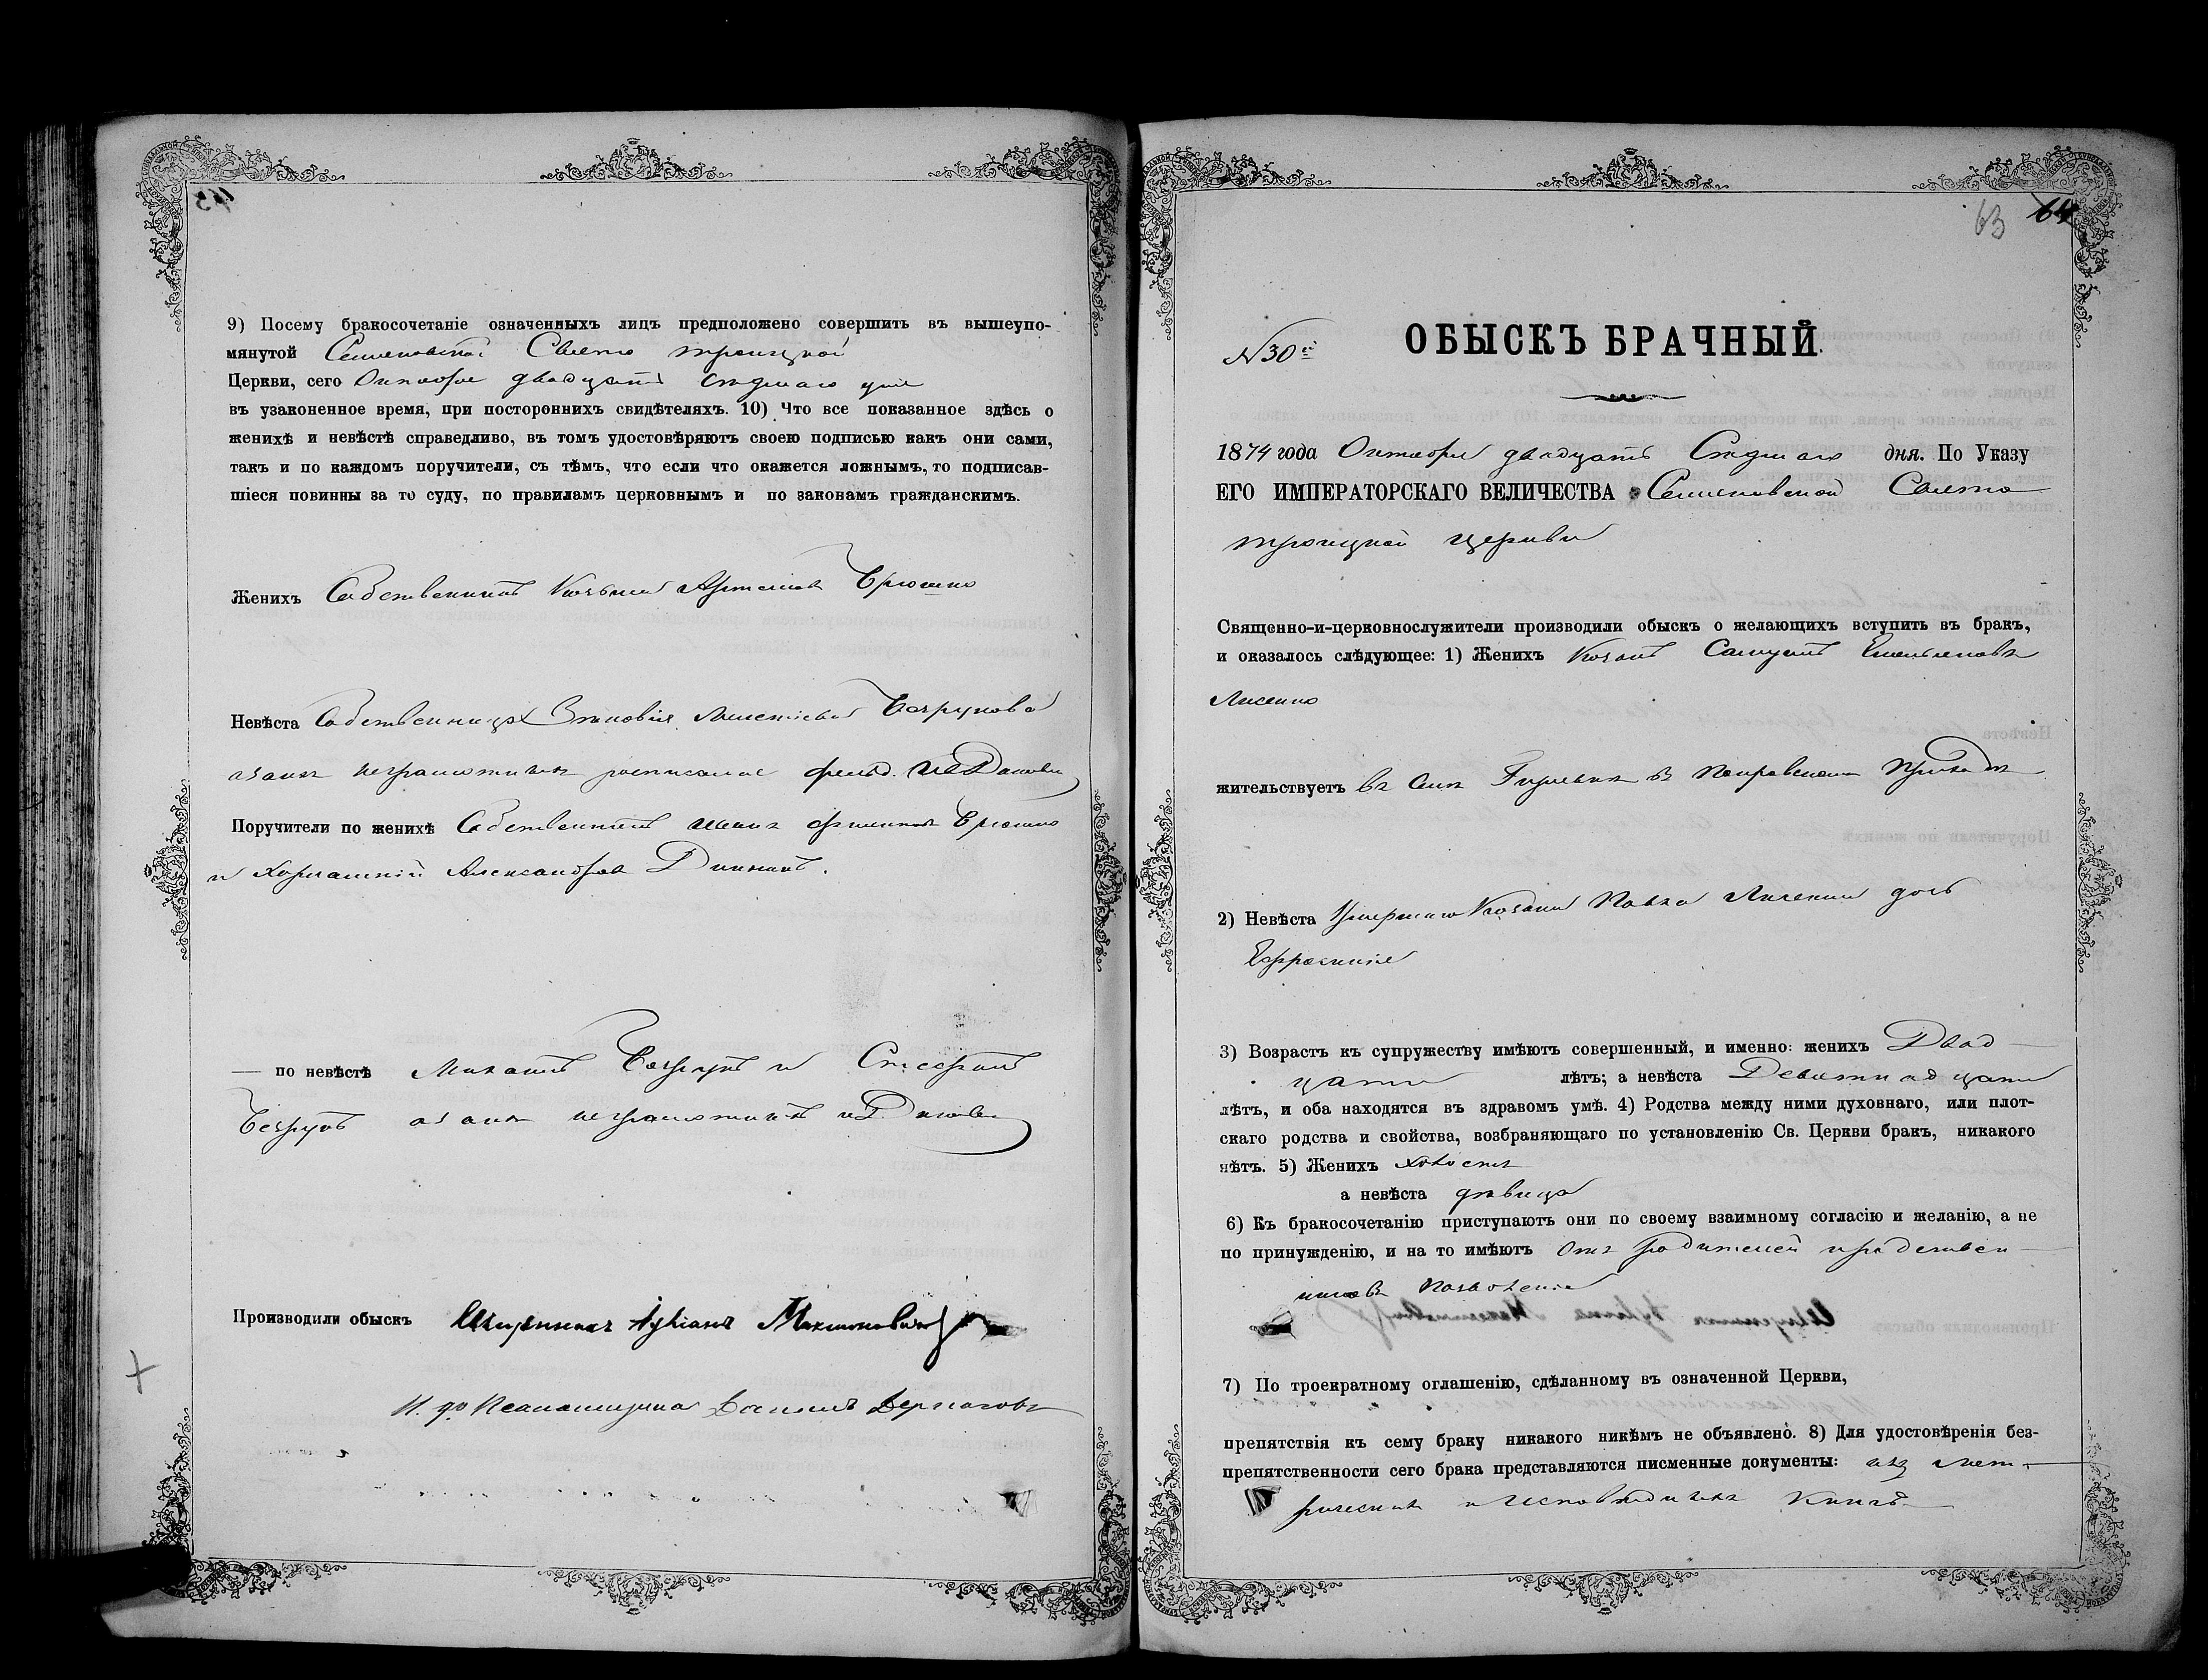 9) Посему бракосочетаніе означенныхъ лицъ предположено совершить въ вышеупо-
мянутой Семеновской Свято троицкой
Церкви, сего Октября двадцать седмаго дня
въ узаконенное время, при постороннихъ свидѣтеляхъ. 10) Что все показанное здѣсь о
женихѣ и невѣстѣ справедливо, въ томъ удостовѣряютъ своею подписью какъ они сами,
такъ и по каждомъ поручители, съ тѣмъ, что если что окажется ложнымъ, то подписав-
шіеся повинны за то суду, по правиламъ церковнымъ и по законамъ гражданскимъ.
Женихъ Собственникъ Козьма Артемовъ
Невѣста Собственница Зиновія
неграмотныхъ
Поручители по женихѣ Собственникъ
и Александровъ
— по невѣстѣ Михаилъ Безрукъ и
Безрукъ неграмотныхъ
Производили обыскъ Священникъ Максимовичъ
И. д. Псаломщика
63 64
ОБЫСКЪ БРАЧНЫЙ.
№ 30й
1874 года Октября двадцать Седмаго дня. По Указу
ЕГО ИМПЕРАТОРСКАГО ВЕЛИЧЕСТВА Семеновской Свято
троицкой церкви
Священно-и-церковнослужители производили обыскъ о желающихъ вступить въ бракъ,
и оказалось слѣдующее: 1) Женихъ Козакъ Самуилъ Емельяновъ
Лисенко
жительствуетъ въ въ Покровскомъ Приходѣ
2) Невѣста Умершаго Козака Павла дочь
Ефросинія
3) Возрастъ къ супружеству имѣютъ совершенный, и именно: женихъ Двад-
цати лѣтъ; а невѣста Девятнадцати
лѣтъ, и оба находятся въ здравомъ умѣ. 4) Родства между ними духовнаго, или плот-
скаго родства и свойства, возбраняющаго по установленію Св. Церкви бракъ, никакого
нѣтъ. 5) Женихъ холостъ
а невѣста дѣвица
6) Къ бракосочетанію приступаютъ они по своему взаимному согласію и желанію, а не
по принужденію, и на то имѣютъ отъ родителей и родствен-
никовъ позволеніе
7) По троекратному оглашенію, сдѣланному въ означенной Церкви,
препятствія къ сему браку никакого никѣмъ не объявлено. 8) Для удостовѣренія без-
препятственности сего брака представляются писменные документы: изъ мет-
рическихъ и исповѣдныхъ книгъ